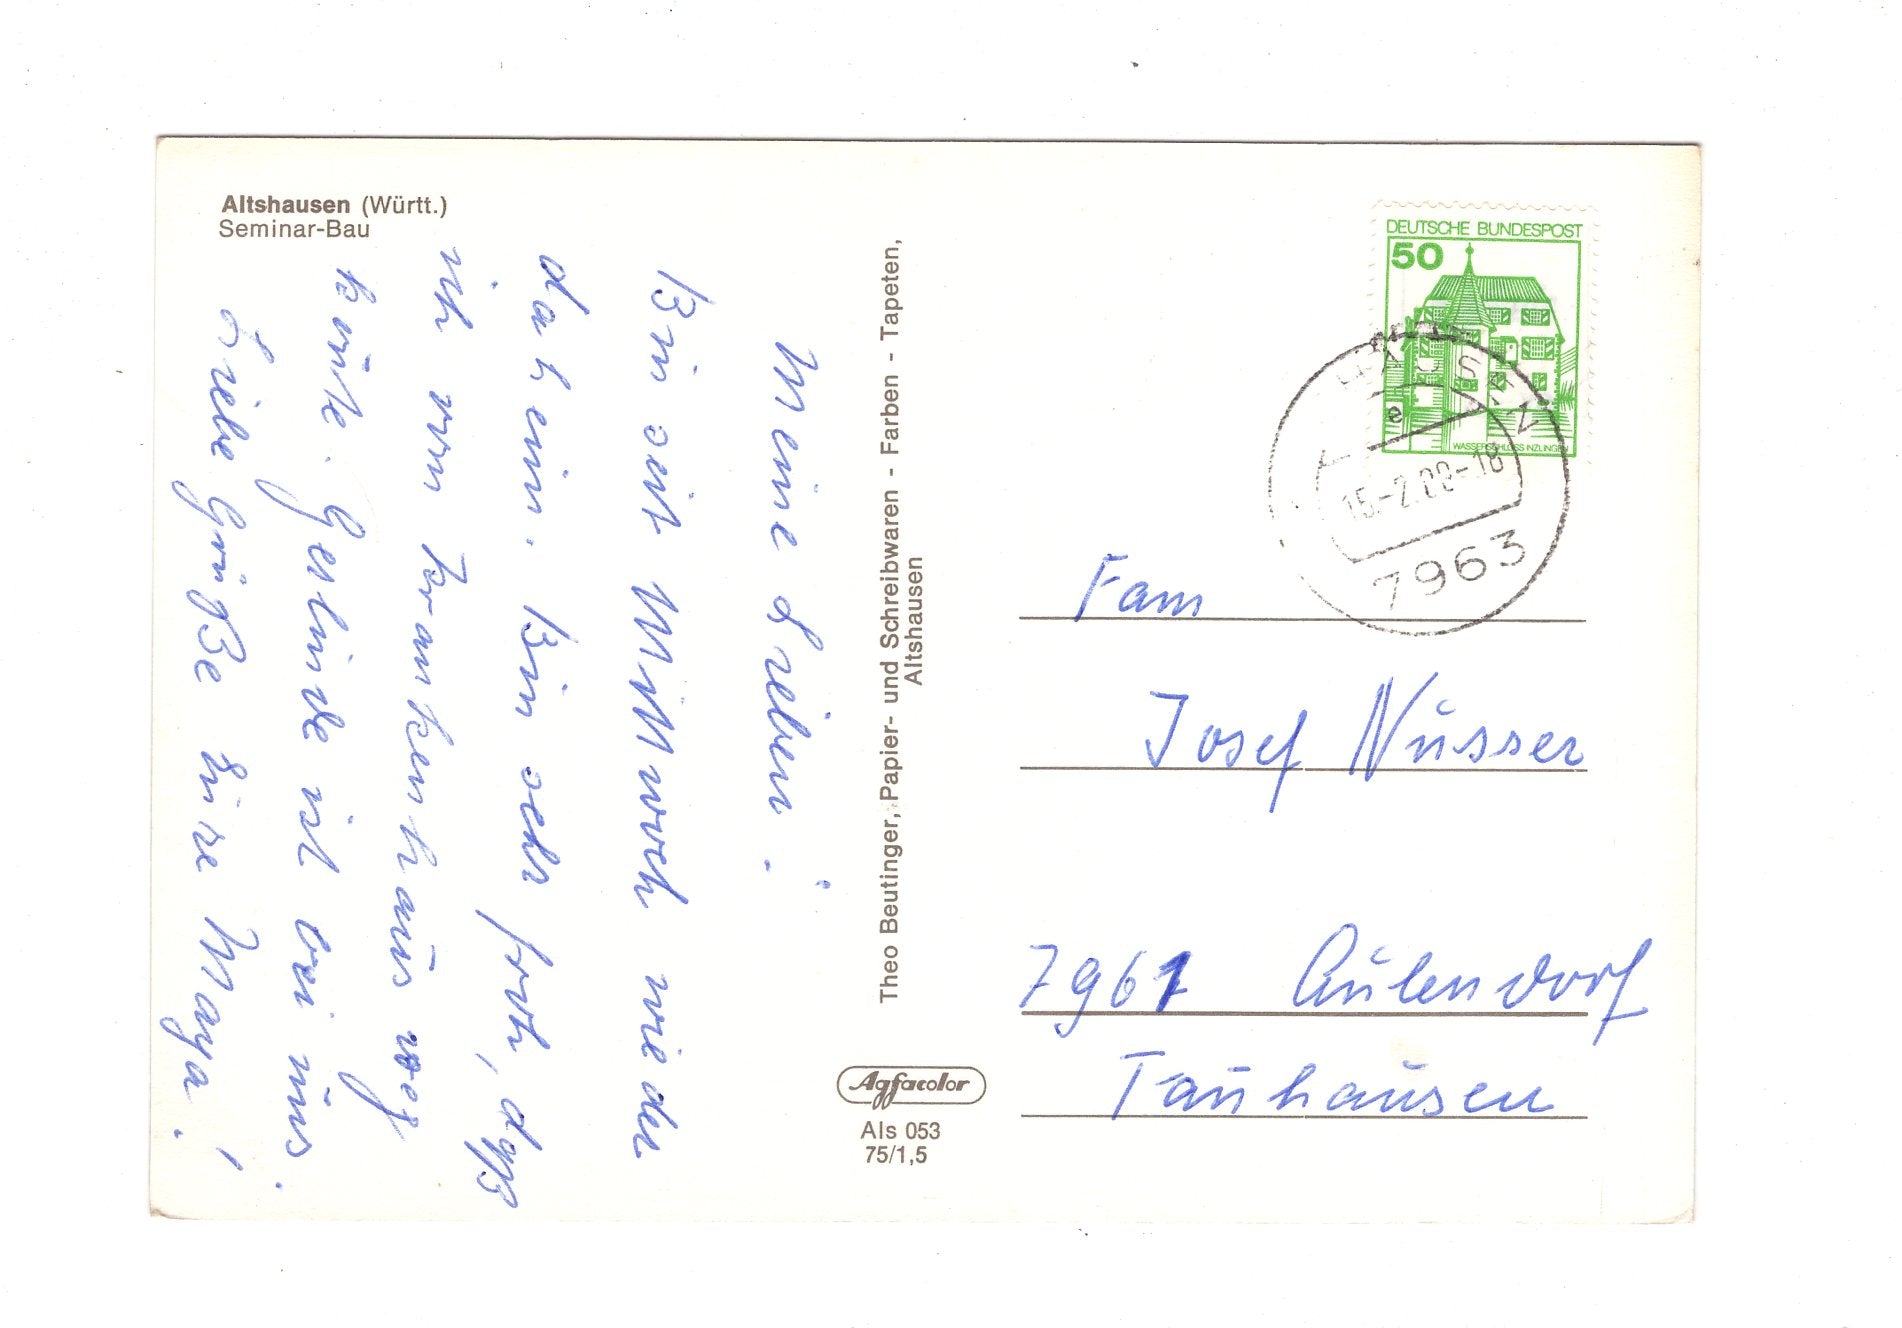 Altshausen (Württ.)
Seminar-Bau
Meine Lieben!
Bin seit Mittwoch wieder
daheim. Bin sehr froh, daß
ich vom Krankenhaus weg
konnte. Gerlinde ist bei uns.
Liebe Grüße Eure Maya!
Theo Beutinger, Papier- und Schreibwaren - Farben - Tapeten,
Altshausen
Agfacolor
Als 053
75/1,5
DEUTSCHE BUNDESPOST
50
WASSERSCHLOSS INZLINGEN
HAUSEN
e
15.-2.
-18
7963
Fam
Josef Nusser
7961 Aulendorf
Tannhausen